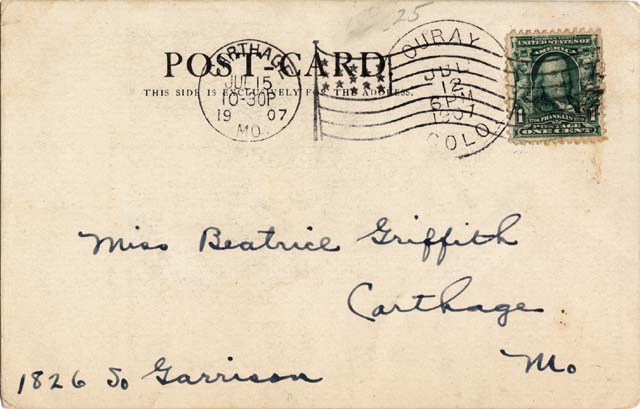 25
POST-CARD.
THIS SIDE IS EXCLUSIVELY FOR THE ADDRESS.
CARTHAGE
JUL 15
10-30P
19 07
MO.
OURAY
JUL
12
6 PM
1907
COLO.
UNITED STATES OF
AMERICA
FRANKLIN
POSTAGE
1 1
ONE CENT
Miss Beatrice Griffith
Carthage
Mo
1826 So Garrison